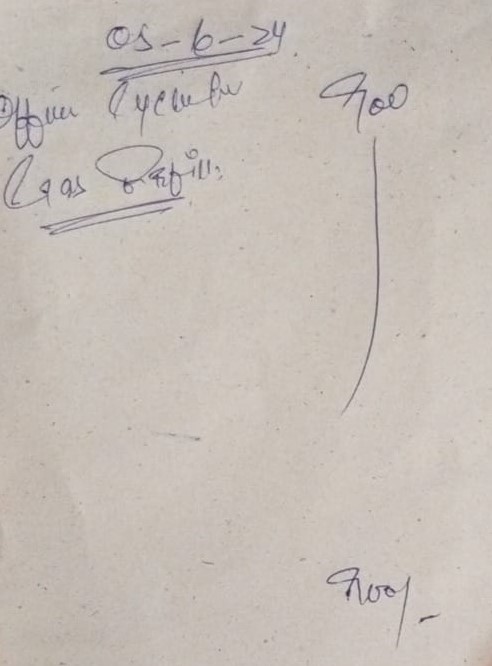 05-6-24
Office Cylinder 900
Gas Refill:
900/-